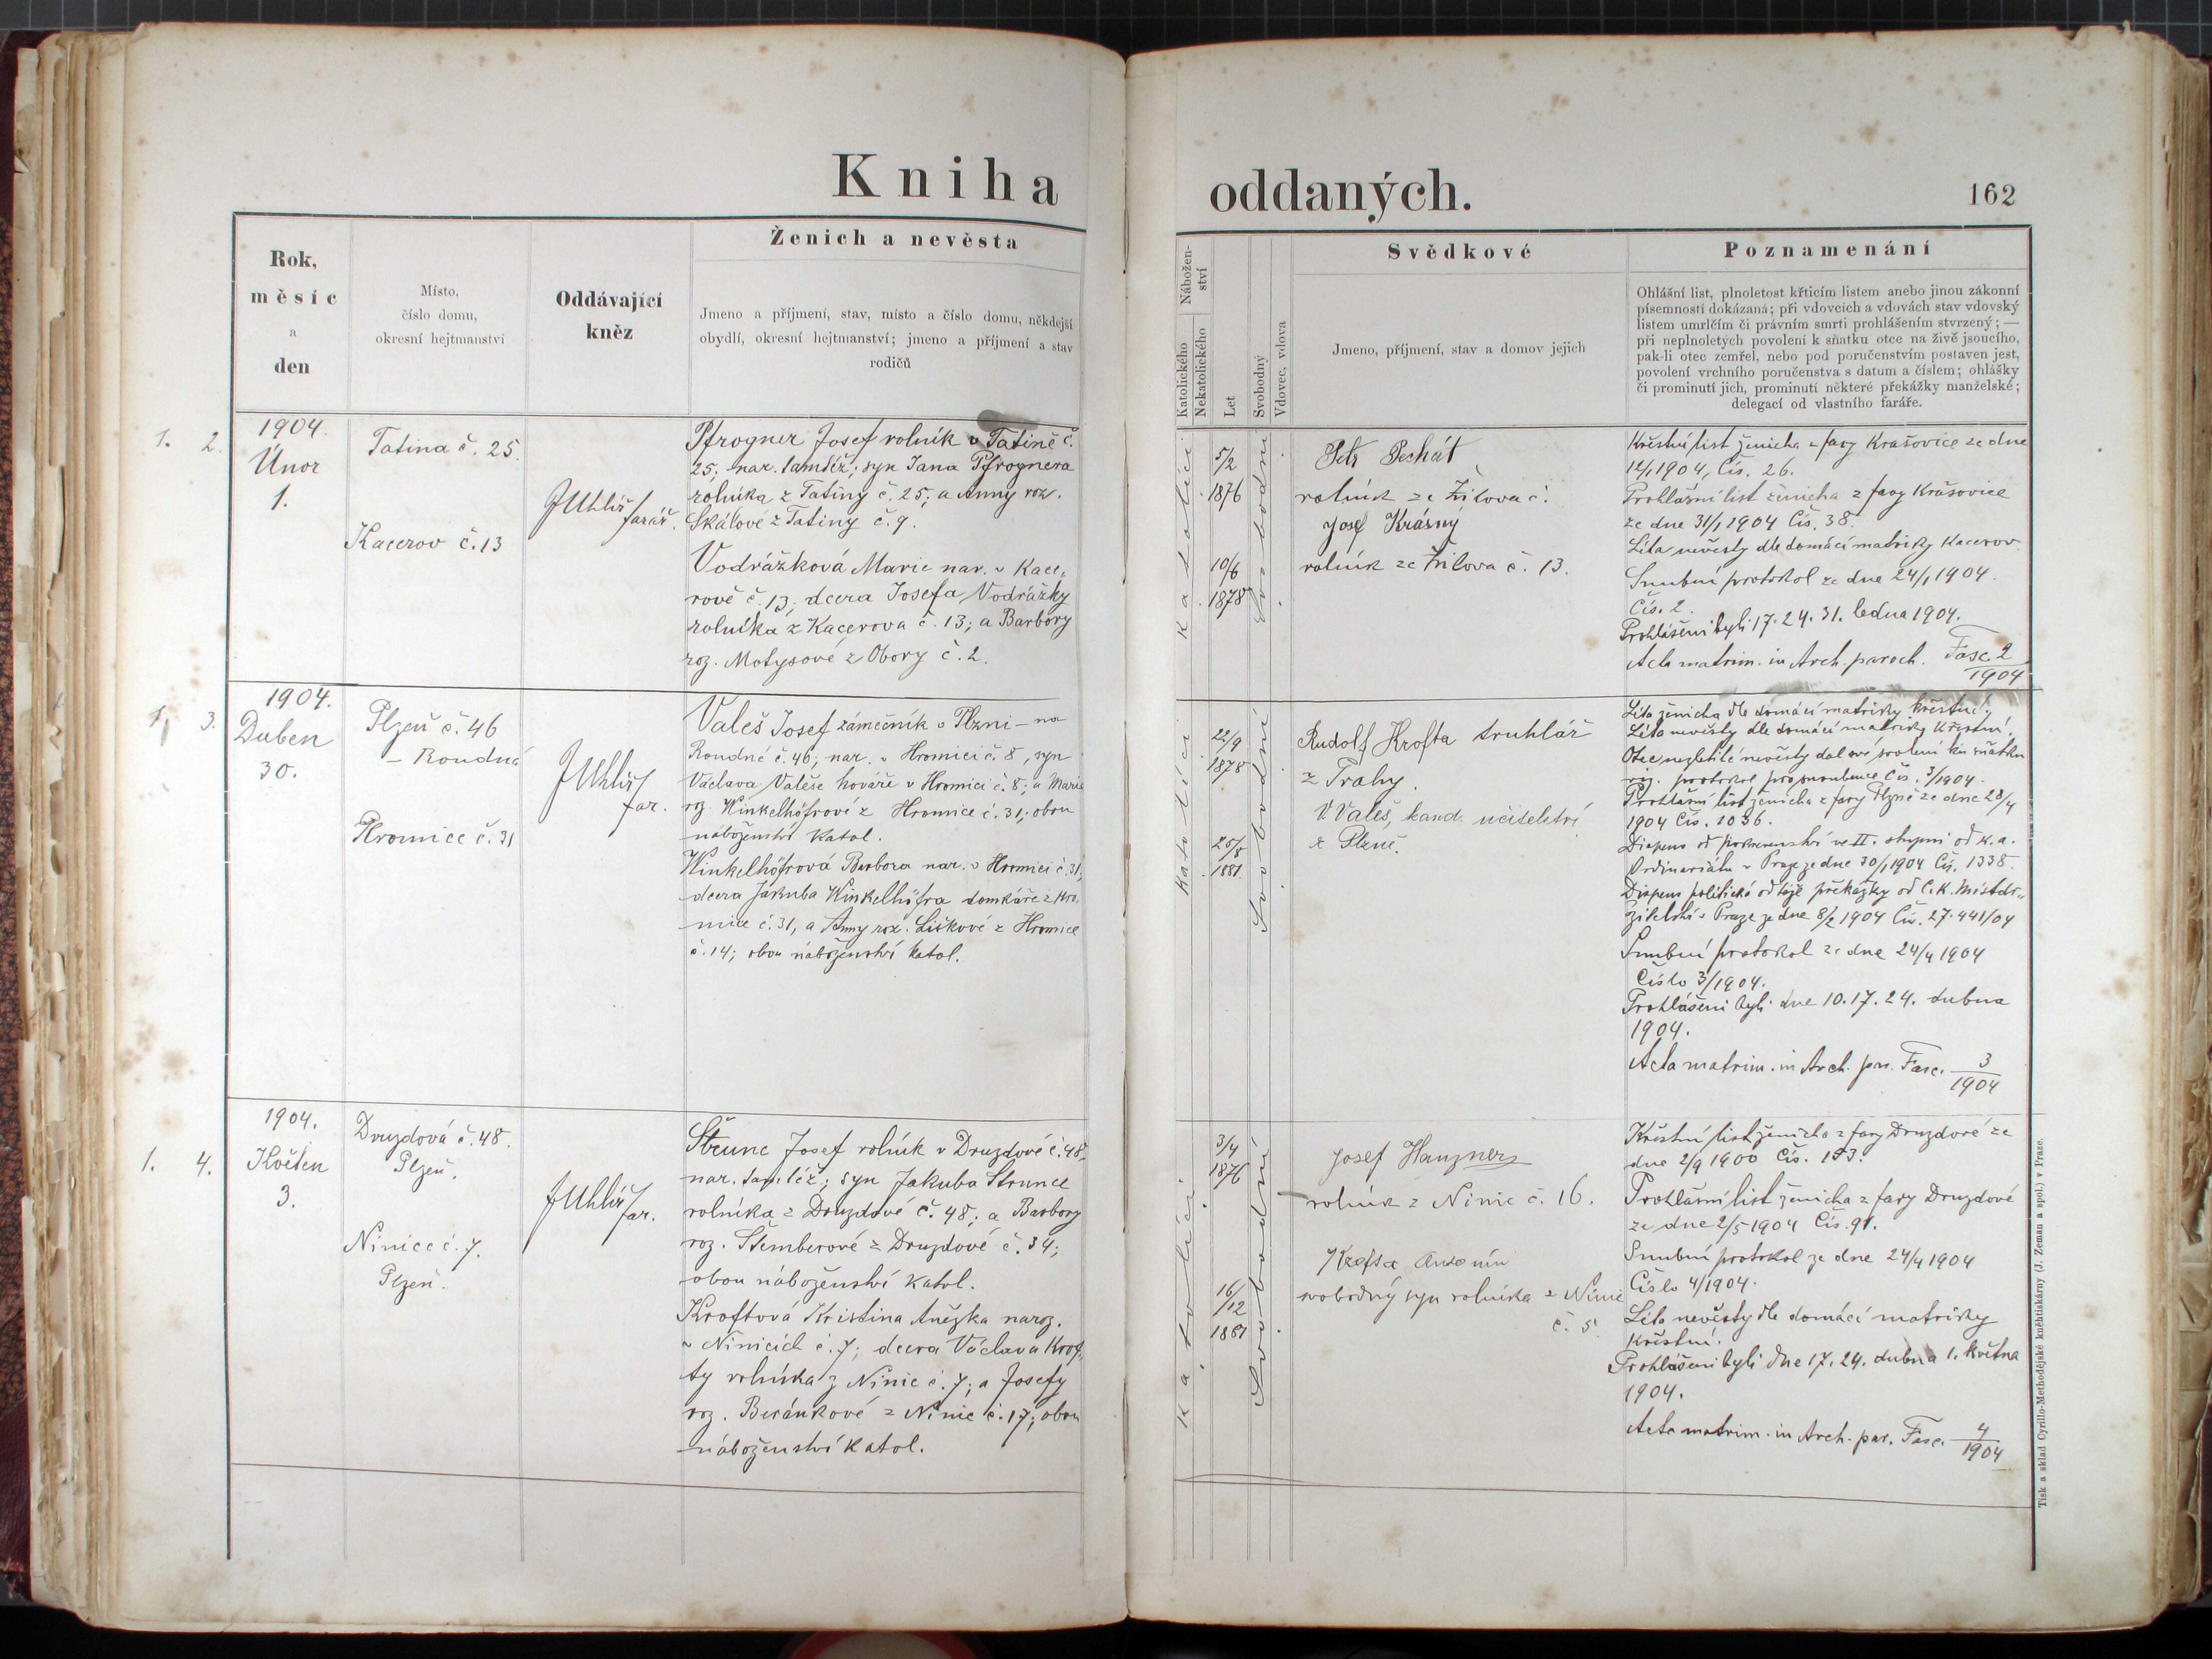 Kniha
oddaných.
162
Rok,
měsíc
a
den
Místo,
číslo domu,
okresní hejtmanství
Oddávající
kněz
Ženich a nevěsta
Jmeno a příjmení, stav, místo a číslo domu, někdejší
obydlí, okresní hejtmanství; jmeno a příjmení a stav
rodičů
Nábožen-
ství
Katolického
Nekatolického
Let
Svobodný
Vdovec, vdova
Svědkové
Jmeno, příjmení, stav a domov jejich
Poznamenání
Ohlášní list, plnoletost křticím listem anebo jinou zákonní
písemností dokázaná; při vdovcích a vdovách stav vdovský
listem umrlčím či právním smrti prohlášením stvrzený; —
při neplnoletých povolení k sňatku otce na živě jsoucího,
pak-li otec zemřel, nebo pod poručenstvím postaven jest,
povolení vrchního poručenstva s datum a číslem; ohlášky
či prominutí jich, prominutí některé překážky manželské;
delegací od vlastního faráře.
1. 2.
1904.
Únor
1.
Tatina č. 25.
Kacerov č. 13
JUhlíř
farář.
Pfrogner Josef rolník v Tatině č.
25. nar. tamtéž; syn Jana Pfrognera
rolníka z Tatiny č. 25; a Anny roz.
Skálové z Tatiny č. 9.
Vodrážková Marie nar. v Kace,
rově č. 13; dcera Josefa Vodrážky
rolníka z Kacerova č. 13; a Barbory
roz. Motysové z Obory č. 2.
Katolíci
5/2
1876
10/6
1878
Svobodni
Petr Pechát
rolník ze Žilova č.
Josef Krásný
rolník ze Žilova č. 13.
Křestní list ženicha z fary Krašovice ze dne
12/1 1904, Čís. 26.
Prohlášní list ženicha z fary Krašovice
ze dne 31/1 1904 Čís. 38.
Léta nevěsty dle domácí matriky Kacerov
Snubní protokol ze dne 24/1 1904.
Čís. 2.
Prohlášeni byli 17. 24. 31. ledna 1904.
Acta matrim. in Arch. paroch. Fasc. 2
1904
1. 3.
1904.
Duben
30.
Plzeň č. 46
– Roudná
Hromice č. 31
JUhlíř
far.
Valeš Josef zámečník v Plzni – na
Roudné č. 46; nar. v Hromici č. 8, syn
Václava Valeše kováře v Hromici č. 8; a Marie
roz. Winkelhöfrové z Hromice č. 31; obou
náboženství katol.
Winkelhöfrová Barbora nar. v Hromici č. 31;
dcera Jakuba Winkelhöfra domkáře z Hro,
mice č. 31, a Anny roz. Liškové z Hromice
č. 14; obou náboženství katol.
Katolíci
22/9
1878
25/8
1881.
Svobodní
Rudolf Krofta truhlář
z Prahy.
V. Valeš, kand. učitelství
z Plzně.
Léta ženicha dle domácí matriky křestní.
Léta nevěsty dle domácí matriky křestní.
Otec nezletilé nevěsty dal své svolení ku sňatku
viz. protokol pro snoubence Čís. 3/1904.
Prohlášní list ženicha z fary Plzně ze dne 28/4
1904 Čís. 1036.
Dispens od pokrevenství ve II. stupni od k. a.
Ordinariátu v Praze ze dne 30/1 1904 Čís. 1338.
Dispens politická od téže překážky od C. K. Místdr-
žitelství v Praze ze dne 8/2 1904 Čís. 27.441/04
Snubní protokol ze dne 24/4 1904
Číslo 3/1904.
Prohlášeni byli dne 10. 17. 24. dubna
1904.
Acta matrim. in Arch. par. Fasc. 3
1904
1. 4.
1904.
Květen
3.
Druzdová č. 48.
Plzeň.
Ninice č. 7.
Plzeň.
JUhlíř
far.
Štrunc Josef rolník v Druzdové č. 48,
nar. tamtéž; syn Jakuba Štrunce
rolníka z Druzdové č. 48; a Barbory
roz. Štemberové z Druzdové č. 34;
obou náboženství katol.
Kroftová Kristina Anežka naroz.
v Ninicích č. 7; dcera Václava Krof,
ty rolníka z Ninic č. 7; a Josefy
roz. Beránkové z Ninic č. 17; obou
náboženství katol.
Katolíci
3/4
1876
16/12
1881
Svobodní
Josef Hanzner
rolník z Ninic č. 16.
Krofta Antonín
svobodný syn rolníka z Ninic
č. 5.
Křestní list ženicha z fary Druzdové ze
dne 2/9 1900 Čís. 153.
Prohlášní list ženicha z fary Druzdové
ze dne 2/5 1904 Čís. 91.
Snubní protokol ze dne 24/4 1904
Číslo 4/1904.
Léta nevěsty dle domácí matriky
křestní.
Prohlášeni byli dne 17. 24. dubna 1. května
1904.
Acta matrim. in Arch. par. Fasc. 4
1904
Tisk a sklad Cyrillo-Methodějské kněhtiskárny (J. Zeman a spol.) v Praze.